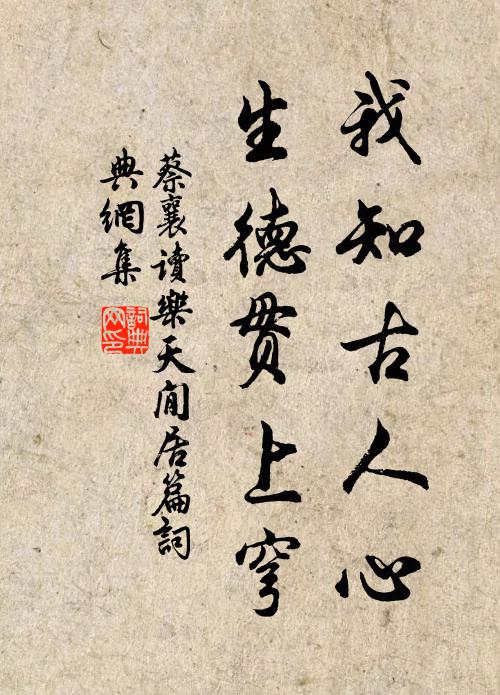 我知古人心
生德贯上穹
蔡襄讀樂天閒居篇詞
典網集
詞典
网印